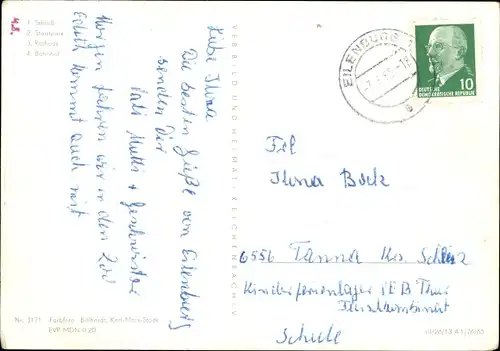 4.8.
1. Schloß
2. Staatspark
3. Rathaus
4. Bahnhof
Liebe Ilona
Die besten Grüße von Eilenburg
senden Dir
Vati Mutti + Geschwister
Morgen fahren wir in den Zoo
Edith kommt auch mit
VEB BILD UND HEIMAT · REICHENBACH I. V.
EILENBURG 1
a
10
DEUTSCHE
DEMOKRATISCHE REPUBLIK
Frl
Ilona Bock
6556 Tanna Krs. Schleiz
Kinderferienlager VEB Thür
Fleischkombinat
Schule
EVP MDN 0,20